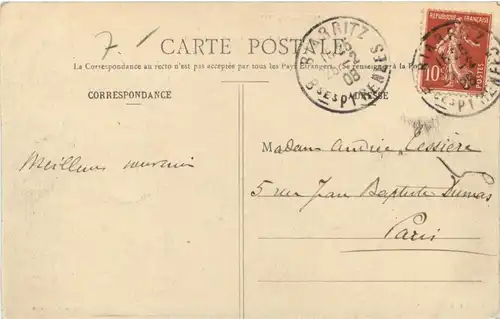 7.
CARTE POSTALE
La Correspondance au recto n'est pas acceptée par tous les Pays Étrangers. (Se renseigner à la Poste)
CORRESPONDANCE
ADRESSE
BIARRITZ
08
BSES PYRENEES
REPUBLIQUE FRANÇAISE
10
POSTES
BIARRITZ
08
Meilleurs souvenirs
Madame Andrée Lessière
5 rue Jean Baptiste Dumas
Paris